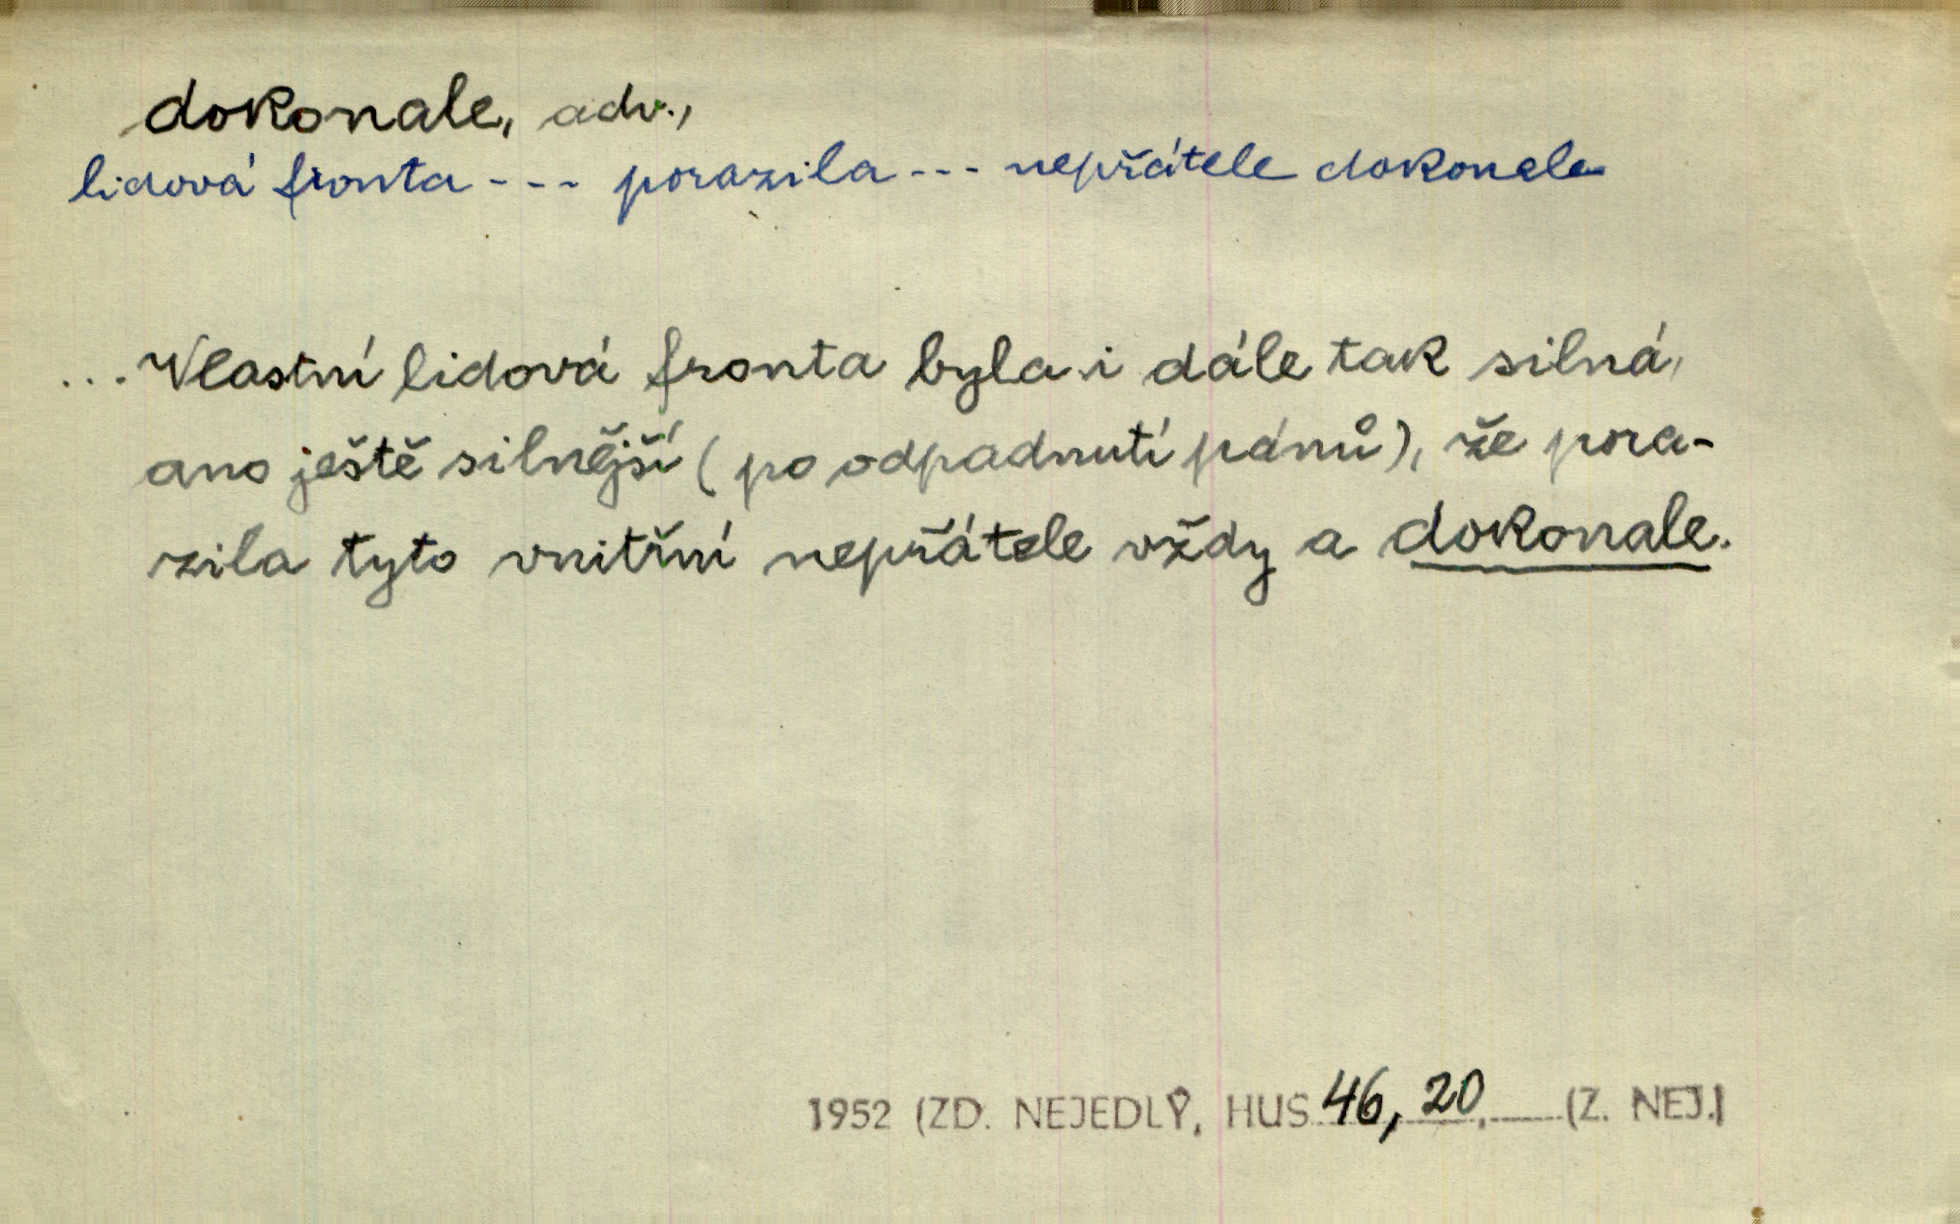 dokonale, adv.,
lidová fronta --- porazila --- nepřátele dokonale
... Vlastní lidová fronta byla i dále tak silná,
ano ještě silnější (po odpadnutí pánů), že pora-
zila tyto vnitřní nepřátele vždy a dokonale.
1952 (ZD. NEJEDLÝ, HUS 46, 20, (Z. NEJ.)